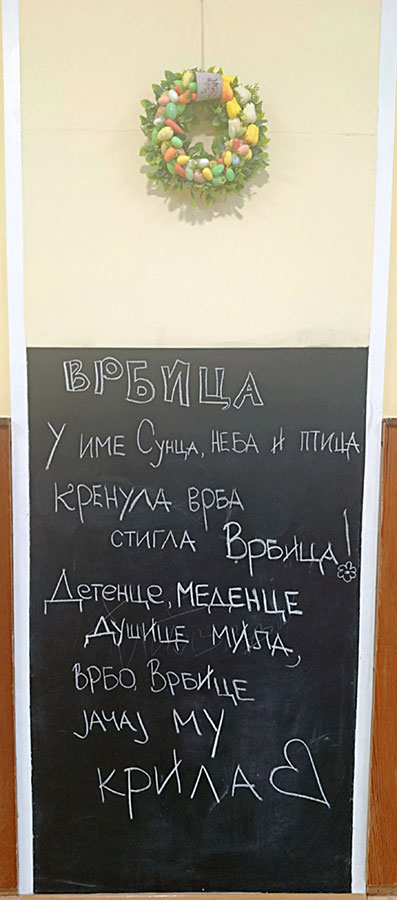 ВРБИЦА
У ИМЕ СУНЦА, НЕБА И ПТИЦА
КРЕНУЛА ВРБА
СТИГЛА ВРБИЦА!
ДЕТЕНЦЕ, МЕДЕНЦЕ
ДУШИЦЕ МИЛА,
ВРБО, ВРБИЦЕ
ЈАЧАЈ МУ
КРИЛА